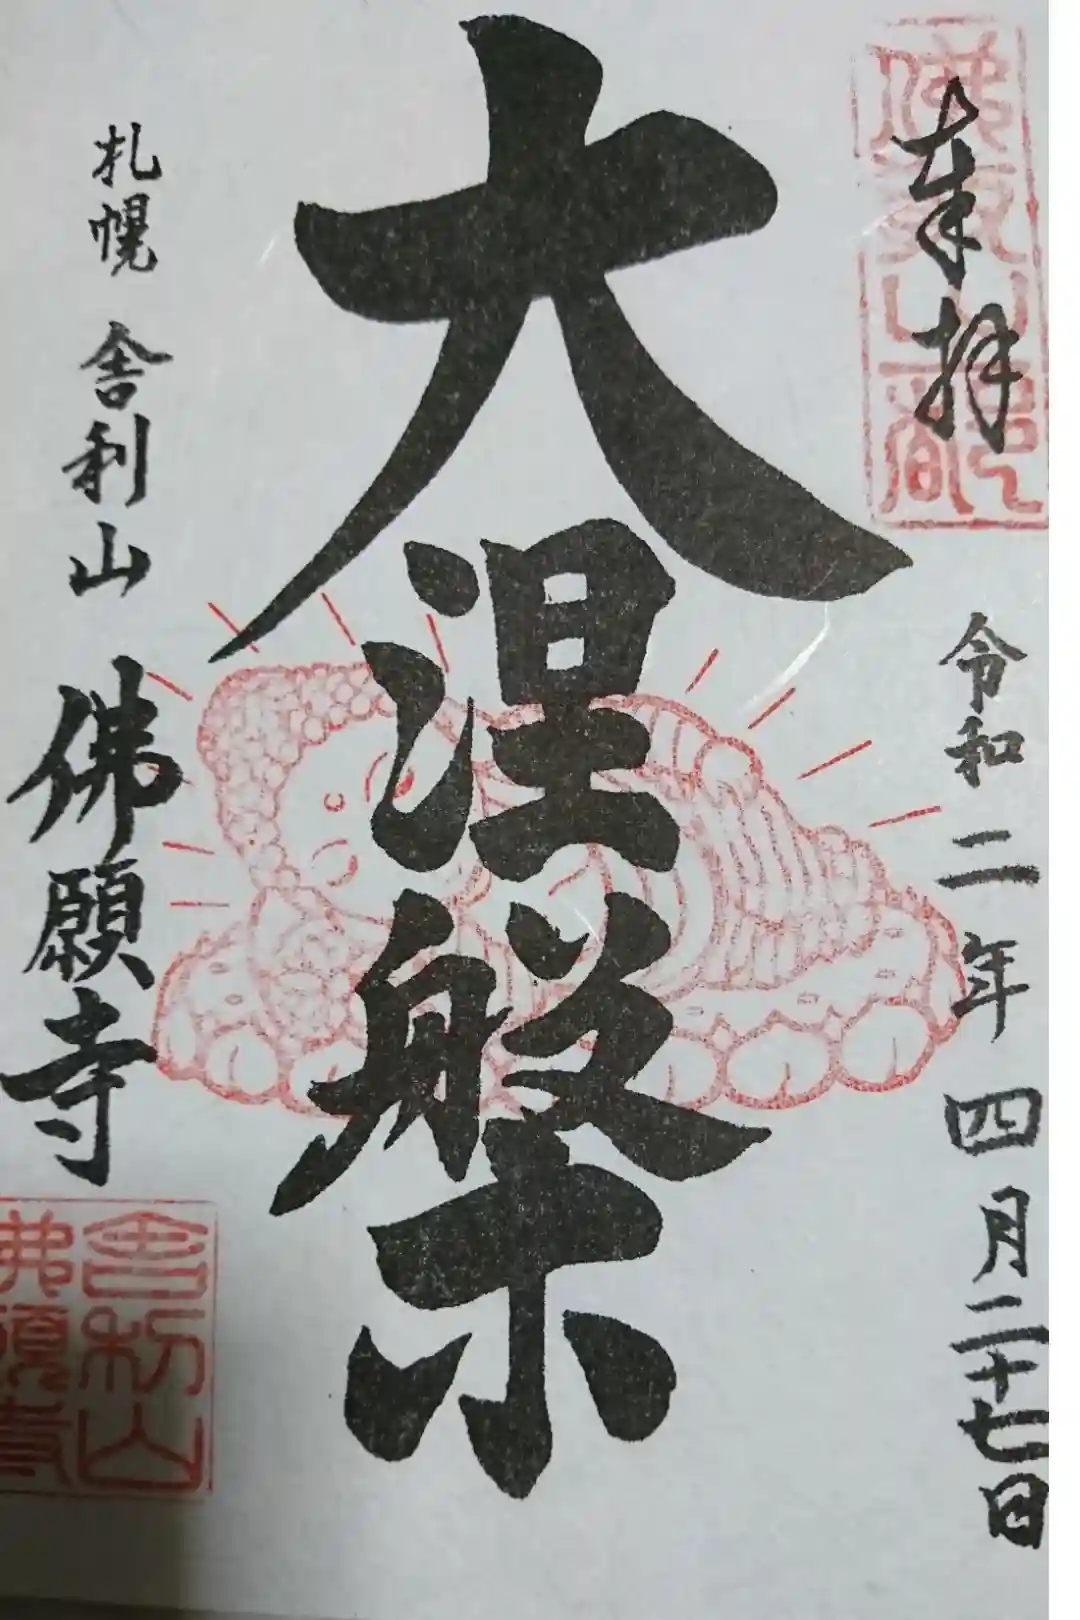 奉拝
令和二年四月二十七日
大涅槃
札幌 舎利山 佛願寺
舎利山
佛願寺